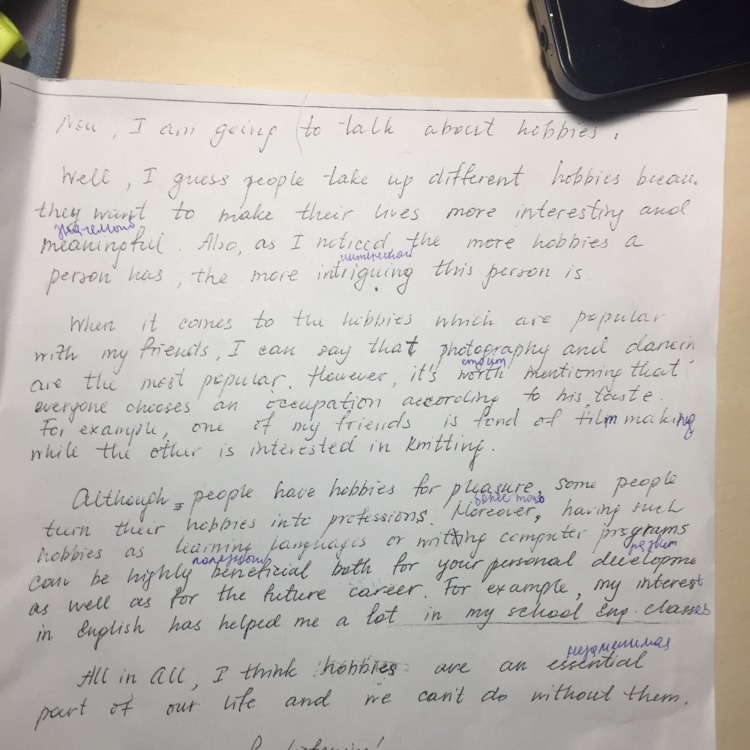 Now, I am going to talk about hobbies.
Well, I guess people take up different hobbies becau
they want to make their lives more interesting and
meaningful. Also, as I noticed the more hobbies a
person has, the more intriguing this person is.
When it comes to the hobbies which are popular
with my friends, I can say that photography and dancin
стоит
are the most popular. However, it's worth mentioning that
everyone chooses an occupation according to his taste.
For example, one of my friends is fond of film making
while the other is interested in knitting.
Although people have hobbies for pleasure, some people
более того
turn their hobbies into professions. Moreover, having such
hobbies as learning languages or writing computer programs
can be highly beneficial both for your personal developme
as well as for the future career. For example, my interest
in English has helped me a lot in my school Eng. classes
All in all, I think hobbies are an essential
part of our life and we can't do without them.